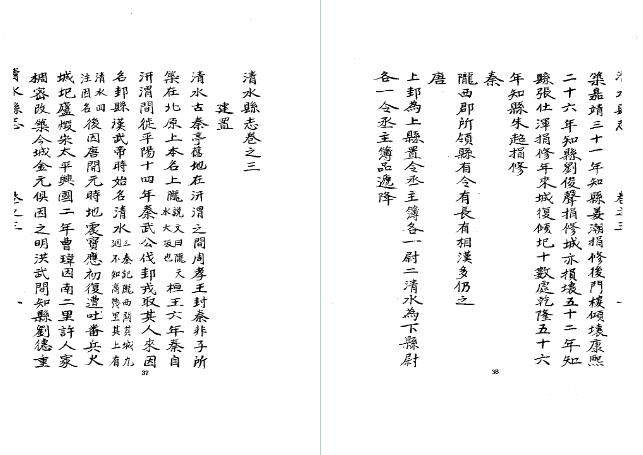 清水縣志卷之三
建置
清水古秦亭舊地在汧渭之間周孝王封秦非子所
築在北原上本名上隴說文曰隴天水大坂也桓王六年秦自
汧渭間徙平陽十四年秦武公伐邽戎取其人來因
名邽縣漢武帝時始名清水三秦記隴西關其坂九迴不知高幾里其上有
清水四注因名後因唐開元時地震寶應初復遭吐番兵火
城圮廬燬宋太平興國二年曹瑋因南二里許人家
稠密改築今城金元俱因之明洪武間知縣劉德重
清水縣志 卷之三 一
37
卷之三 一
築嘉靖三十一年知縣姜潮捐修後門樓傾壞康熙
二十六年知縣劉俊聲捐修城亦損壞五十二年知
縣張仕渾捐修年來城復傾圮十數處乾隆五十六
年知縣朱超捐修
秦
隴西郡所領縣有令有長有相漢多仍之
唐
上邽為上縣置令丞主簿各一尉二清水為下縣尉
各一令丞主簿品遞降
38